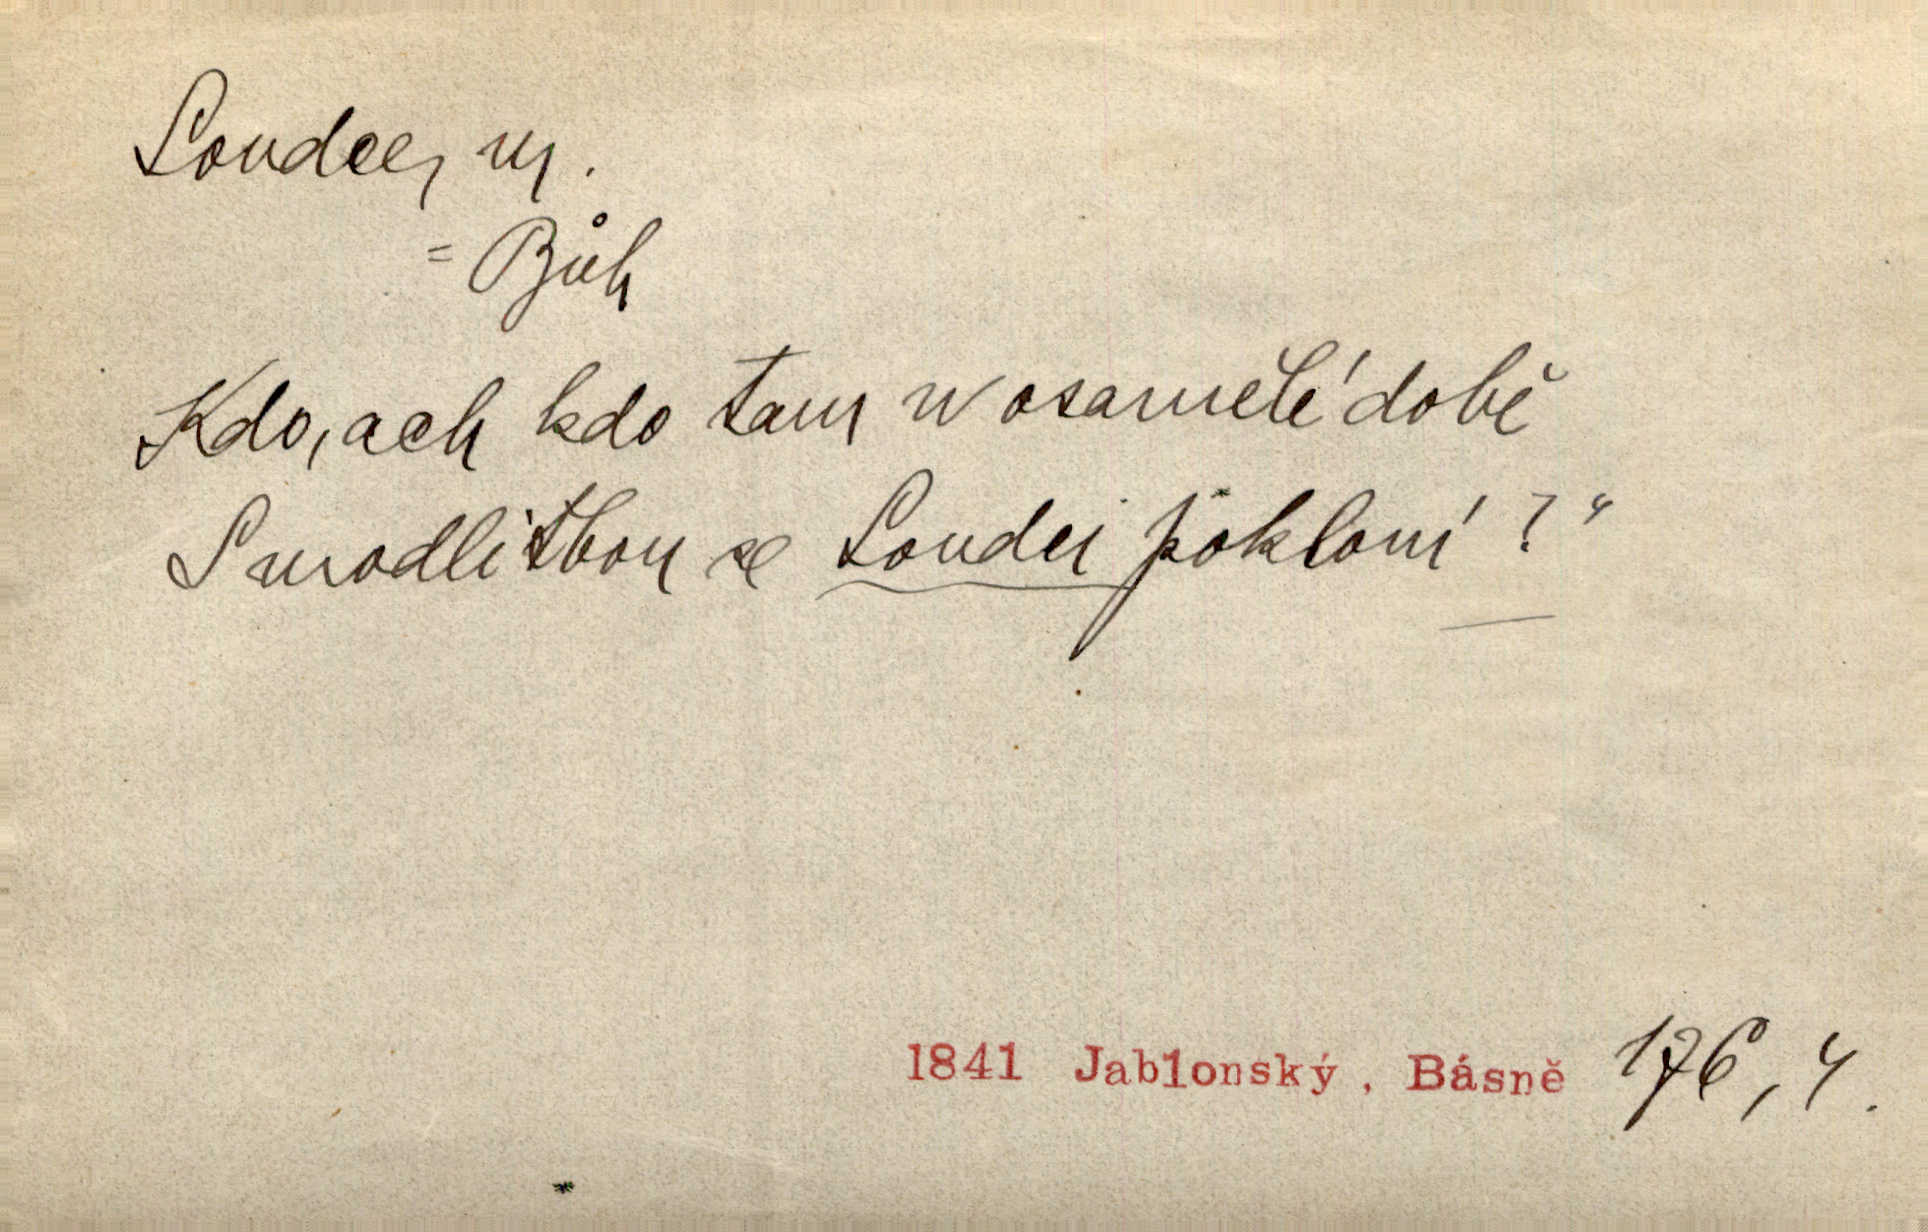 Soudce, m.
= Bůh
Kdo, ach kdo tam w osamělé době
S modlitbou se Soudci pokloní ? “
1841 Jablonský , Básně 176, 4.